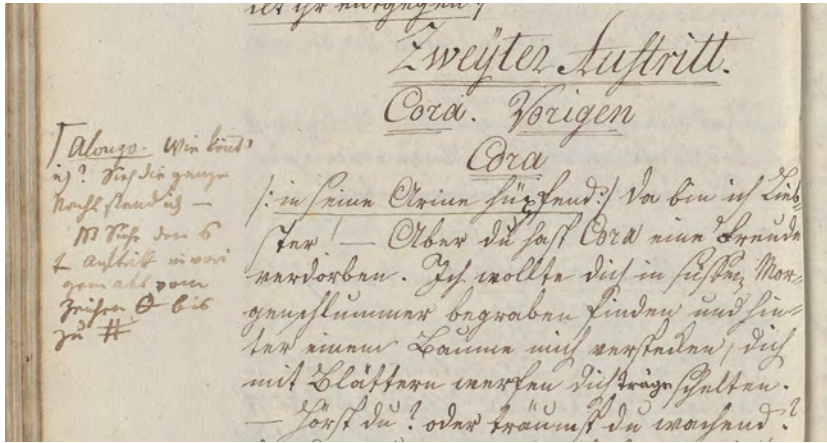 ist ihr entgegen /
Zweyter Auftritt.
Cora. Vorigen
Cora
/: in seine Arme hüpfend:/ Da bin ich Lieb=
ster! — Aber du hast Cora eine Freude
verdorben. Ich wollte dich in süssen Mor=
genschlummer begraben finden und hin=
ter einem Baume mich verstecken, dich
mit Blättern werfen dich träge schelten.
— Hörst du? oder träumst du wachend?
Alonzo. Wie könt'
ich? Sieh die ganze
Nacht stand ich —
NB Siehe den 6
t Auftritt im vori
gem akt vom
Zeichen ⊖ bis
zu #